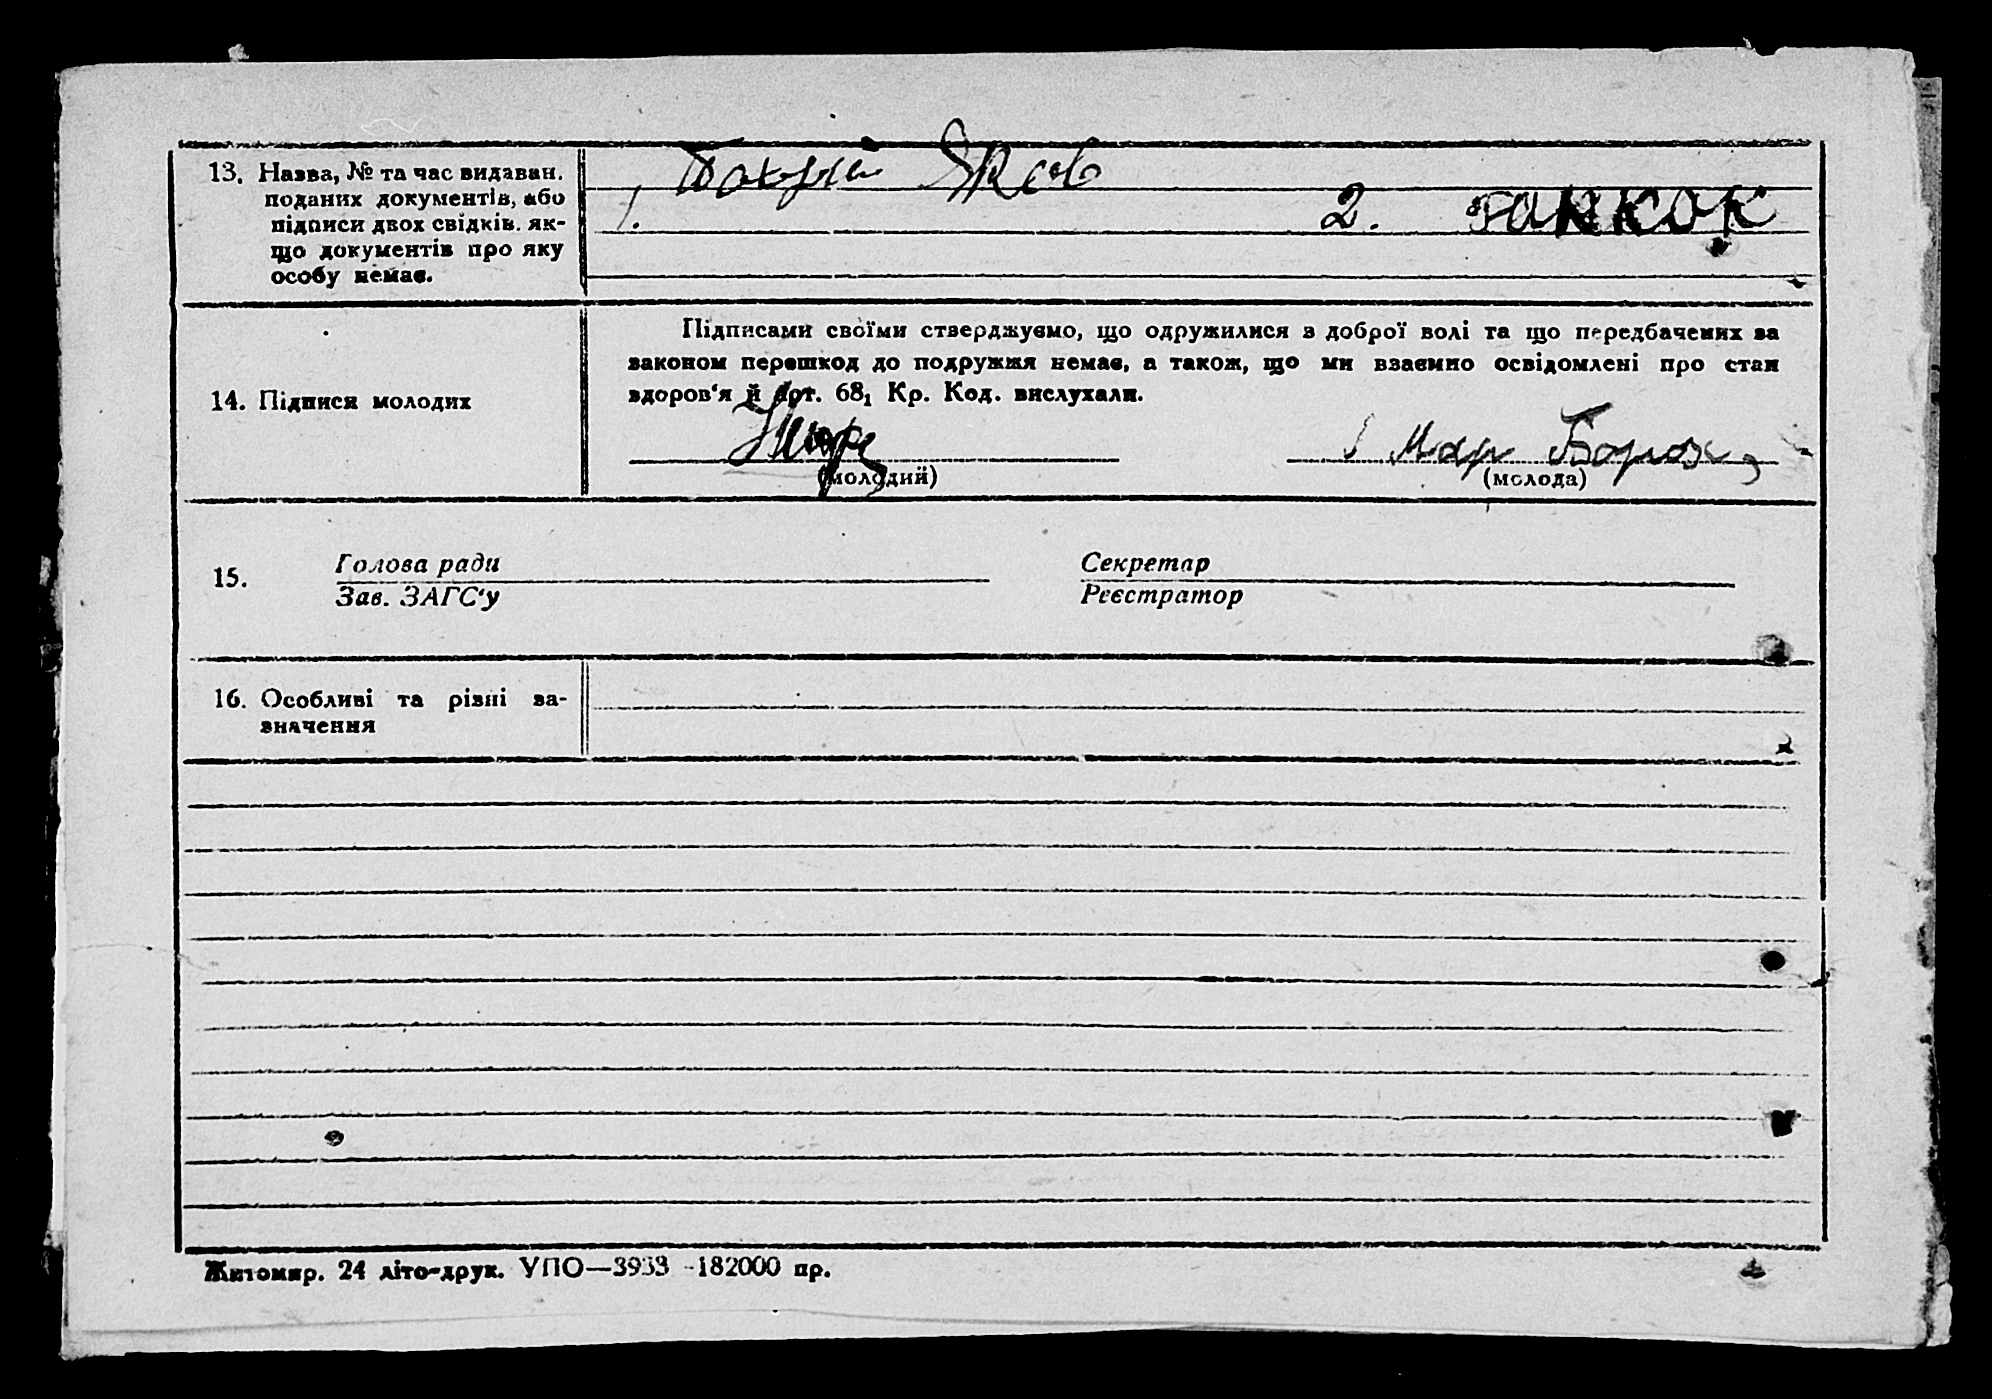 13. Назва, № та час видаван.
поданих документів, або
підписи двох свідків. як-
що документів про яку
особу немає.
1. Яков
2.
Підписами своїми стверджуємо, що одружилися з доброї волі та що передбачених за
законом перешкод до подружжя немає, а також, що ми взаємно освідомлені про стан
здоров'я й Арт. 68₁ Кр. Код. вислухали.
14. Підписи молодих
Мар
(молодий) (молода)
15. Голова ради Секретар
Зав. ЗАГС'у Реєстратор
16. Особливі та різні за-
значення
Житомир. 24 літо-друк. УПО—3933 -182000 пр.